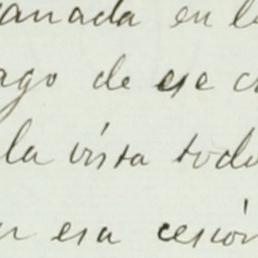 anada en l
ago de ese c
la vista todo
n esa cesión